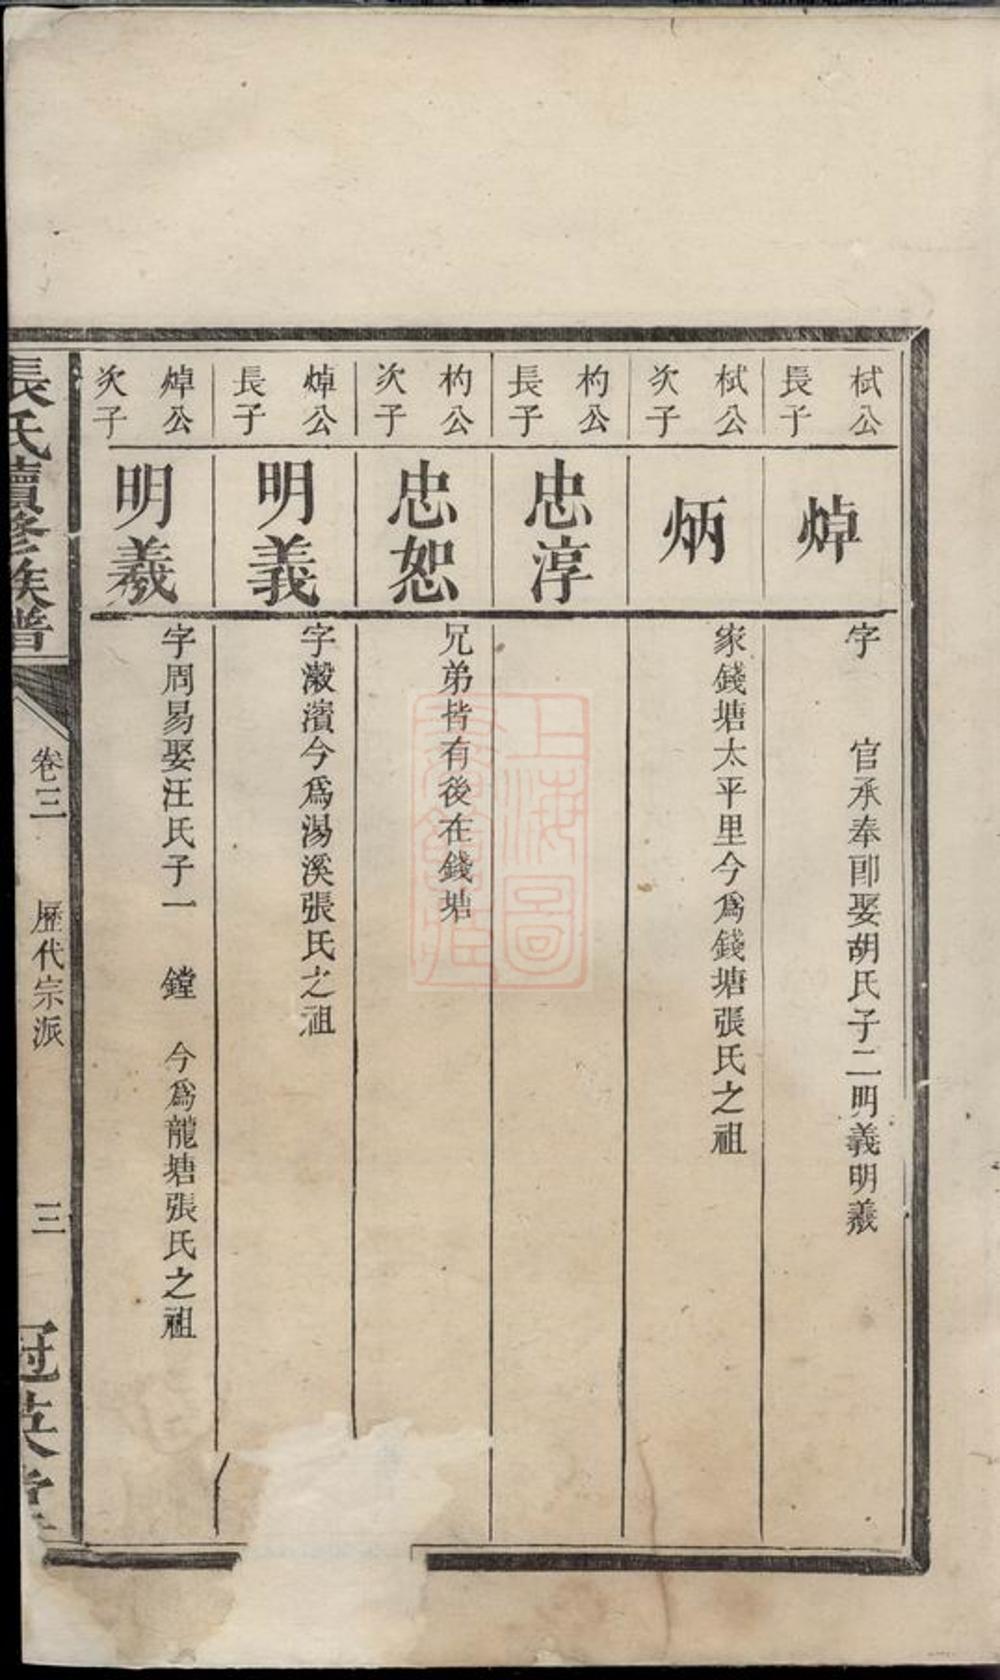 栻公
長子
焯
字 官承奉郎娶胡氏子二明義明羲
栻公
次子
炳
家錢塘太平里今爲錢塘張氏之祖
杓公
長子
忠淳
杓公
次子
忠恕
兄弟皆有後在錢塘
焯公
長子
明義
字瀫濱今爲湯溪張氏之祖
焯公
次子
明羲
字周易娶汪氏子一 鏜 今爲龍塘張氏之祖
張氏續修族譜
卷三
歷代宗派
三
冠英堂
上海圖
書館藏